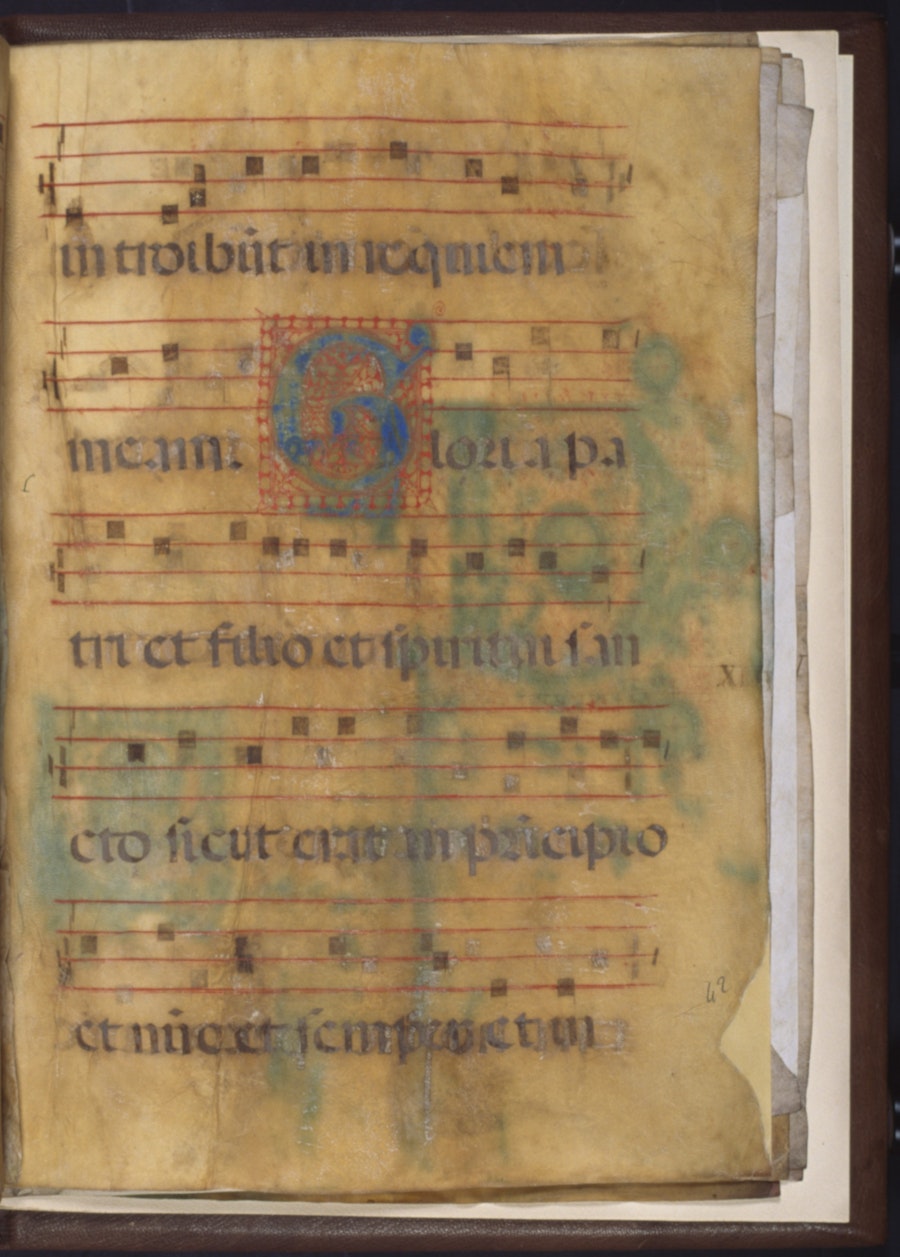 introibūt in requiem
meam. Gloria pa
tri et filio et spiritui san
cto sicut erat in prīcipio
42
et nūc et semper et in